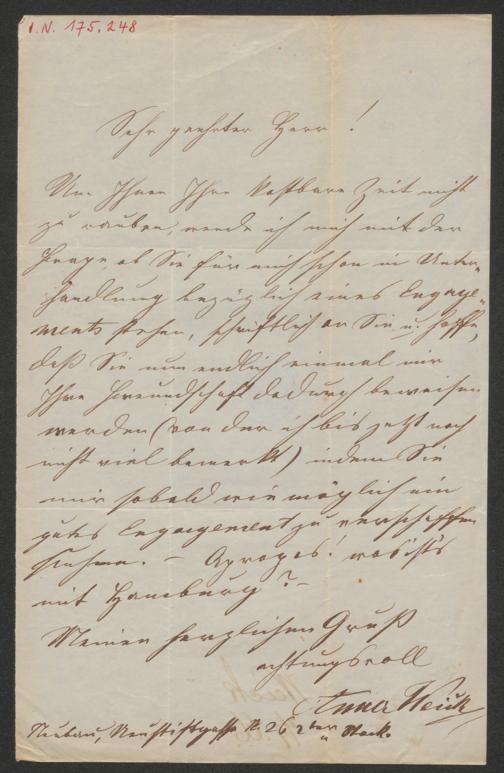 I.N. 175.248
Sehr geehrter Herr!
Um Ihnen Ihre kostbare Zeit nicht
zu rauben, wende ich mich mit der
Frage, ob Sie für mich schon in Unter-
handlung bezüglich eines Engage-
ments stehen, schriftlich an Sie u. hoffe,
daß Sie nun endlich einmal mir
Ihre Freundschaft dadurch beweisen
werden (von der ich bis jetzt noch
nicht viel bemerkt) indem Sie
mir sobald wie möglich ein
gutes Engagement zu verschaffen
suchen. – Apropos! was ist's
mit Hamburg? –
Meinen herzlichen Gruß
achtungsvoll
Anna
Neubau, Neustiftgasse N. 26 2ter Stock.